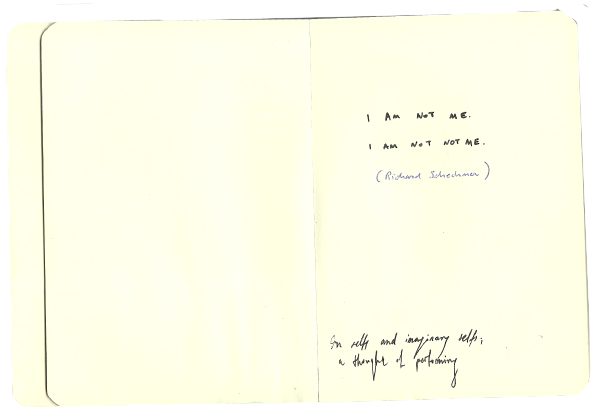 I AM NOT ME.
I AM NOT NOT ME.
(Richard Schechner)
On selfs and imaginary selfs,
a thought of performing